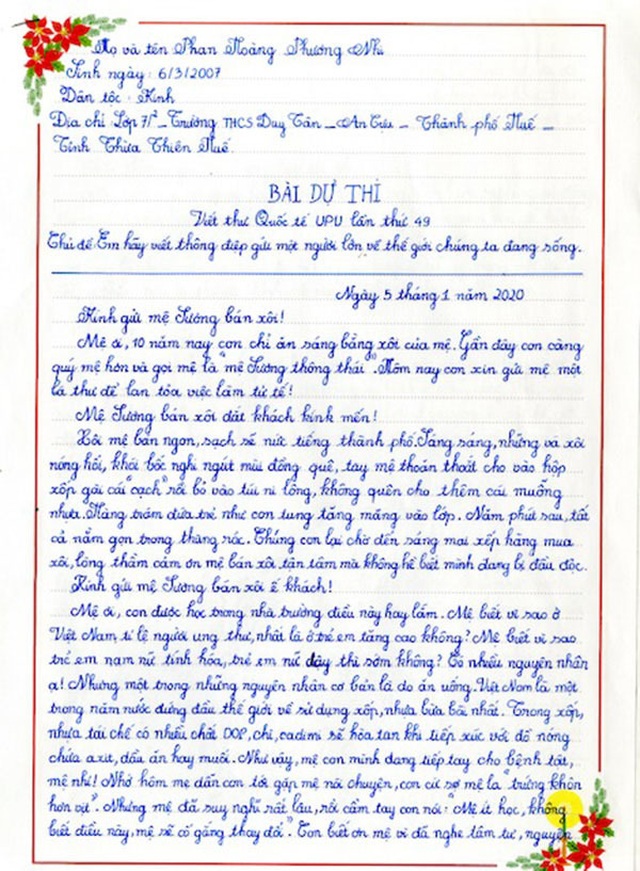 Họ và tên Phan Hoàng Phương Nhi
Sinh ngày: 6/3/2007
Dân tộc: Kinh
Địa chỉ Lớp 7/2 – Trường THCS Duy Tân – An Cựu – Thành phố Huế –
Tỉnh Thừa Thiên Huế.
BÀI DỰ THI
Viết thư Quốc tế UPU lần thứ 49
Chủ đề Em hãy viết thông điệp gửi một người lớn về thế giới chúng ta đang sống.
Ngày 5 tháng 1 năm 2020
Kính gửi mệ Sương bán xôi!
Mệ ơi, 10 năm nay con chỉ ăn sáng bằng xôi của mệ. Gần đây con càng
quý mệ hơn và gọi mệ là "mệ Sương thông thái". Hôm nay con xin gửi mệ một
lá thư để lan tỏa việc làm tử tế!
Mệ Sương bán xôi đắt khách kính mến!
Xôi mệ bán ngon, sạch sẽ nức tiếng thành phố. Sáng sáng, những vá xôi
nóng hổi, khói bốc nghi ngút mùi đồng quê, tay mệ thoăn thoắt cho vào hộp
xốp gài cái "cạch" rồi bỏ vào túi ni lông, không quên cho thêm cái muỗng
nhựa. Hàng trăm đứa trẻ như con tung tăng mang vào lớp. Năm phút sau, tất
cả nằm gọn trong thùng rác. Chúng con lại chờ đến sáng mai xếp hàng mua
xôi, lòng thầm cảm ơn mệ bán xôi tận tâm mà không hề biết mình đang bị đầu độc.
Kính gửi mệ Sương bán xôi ế khách!
Mệ ơi, con được học trong nhà trường điều này hay lắm. Mệ biết vì sao ở
Việt Nam, tỉ lệ người ung thư, nhất là ở trẻ em tăng cao không? Mệ biết vì sao
trẻ em nam nữ tính hóa, trẻ em nữ dậy thì sớm không? Có nhiều nguyên nhân
ạ! Nhưng một trong những nguyên nhân cơ bản là do ăn uống. Việt Nam là một
trong năm nước đứng đầu thế giới về sử dụng xốp, nhựa bừa bãi nhất. Trong xốp,
nhựa tái chế có nhiều chất DOP, chì, cadimi sẽ hòa tan khi tiếp xúc với đồ nóng
chứa axit, dầu ăn hay muối. Như vậy, mệ con mình đang tiếp tay cho bệnh tật,
mệ nhỉ! Nhớ hôm mẹ dẫn con tới gặp mệ nói chuyện, con cứ sợ mệ la "trứng khôn
hơn vịt". Nhưng mệ đã suy nghĩ rất lâu, rồi cầm tay con nói: "Mệ ít học, không
biết điều này, mệ sẽ cố gắng thay đổi". Con biết ơn mệ vì đã nghe tâm tư, nguyện